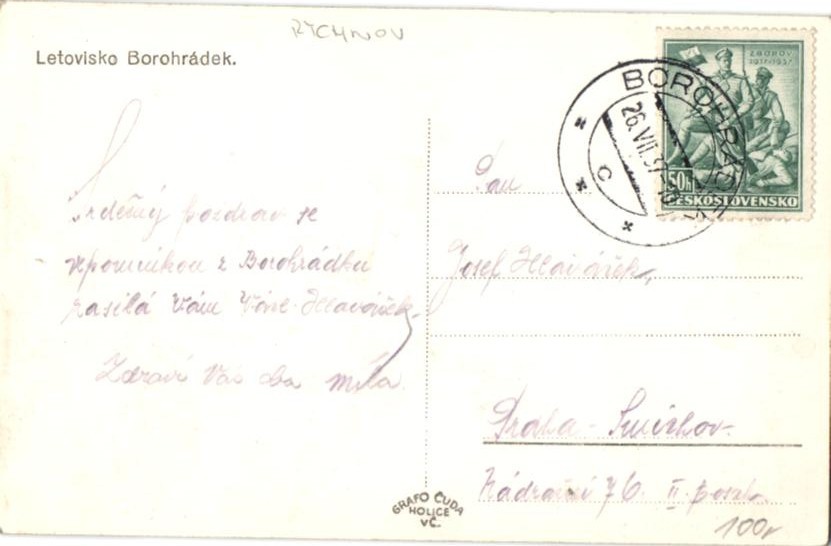 RYCHNOV
Letovisko Borohrádek.
Srdečný pozdrav se
vzpomínkou z Borohrádku
zasílá Vám Hlaváček
Zdraví Vás
ZBOROV
1917-1937
50h
ČESKOSLOVENSKO
BOROHRÁDEK
26.VII.37
C
Pan
Josef Hlaváček,
Praha - Smíchov.
Nádražní 76. II. posch.
GRAFO ČUDA
HOLICE
VČ.
100,-